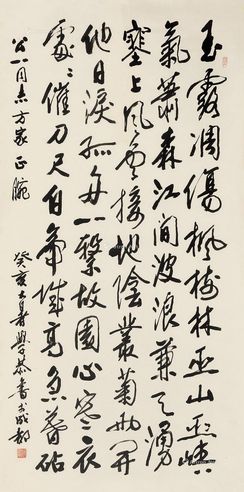 玉露凋傷楓樹林巫山巫峽
氣蕭森江間波浪兼天湧
塞上風雲接地陰叢菊兩開
他日淚孤舟一繫故園心寒衣
處々催刀尺白帝城高急暮砧
公一同志方家正腕
癸亥大暑 書於成都